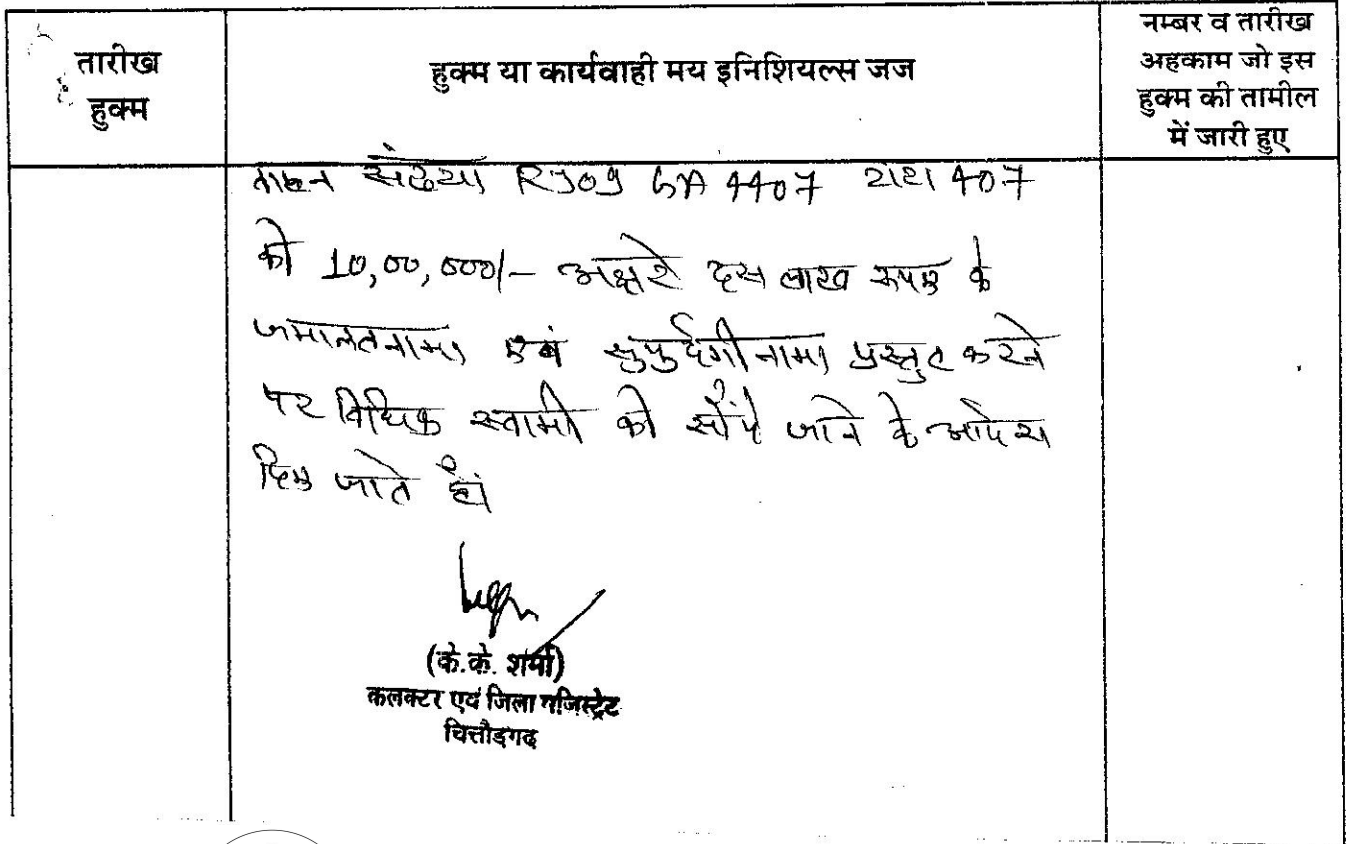 तारीख
हुक्म
हुक्म या कार्यवाही मय इनिशियल्स जज
नम्बर व तारीख
अहकाम जो इस
हुक्म की तामील
में जारी हुए
वाहन संख्या RJ09 GA 4407 टाटा 407
को 10,00,000/- अक्षरे दस लाख रूपए के
जमानतनामा एवं सुपुर्दगीनामा प्रस्तुत करने
पर विधिक स्वामी को सौंपे जाने के आदेश
दिए जाते हैं
(के.के. शर्मा)
कलक्टर एवं जिला मजिस्ट्रेट
चित्तौड़गढ़